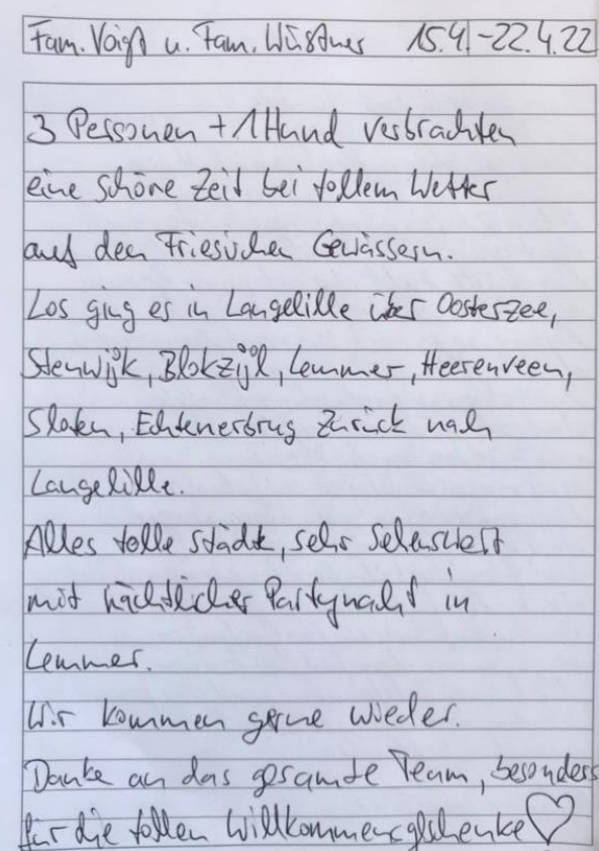 Fam. Voigt u. Fam. Wüstner 15.4.-22.4.22
3 Personen + 1 Hund verbrachten
eine schöne Zeit bei tollem Wetter
auf den Friesischen Gewässern.
Los ging es in Langelille über Oosterzee,
Stenwijk, Blokzijl, Lemmer, Heerenveen,
Sloten, Echtenerbrug zurück nach
Langelille.
Alles tolle Städte, sehr sehenswert
mit nächtlicher Partynacht in
Lemmer.
Wir kommen gerne wieder.
Danke an das gesamte Team, besonders
für die tollen Willkommensgschenke ♡